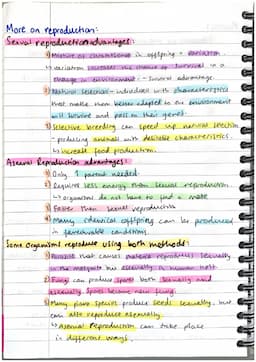 More on reproduction:
Sexual reproduction advantages:
1) Mixture of chromosomes in offspring = variation.
↳ variation increases the chance of survival in a
change in environment - survival advantage.
2) Natural selection - individuals with characteristics
that make them better adapted to an environment
will survive and pass on their genes.
3) Selective breeding can speed up natural selection
- producing animals with desirable characteristics
↳ increase food production.
Asexual Reproduction advantages:
1) Only 1 parent needed.
2) Requires less energy than sexual reproduction
↳ organisms do not have to find a mate
3) Faster than sexual reproduction
4) Many identical offspring can be produced
in favourable conditions.
Some organisms reproduce using both methods:
1) Parasite that causes malaria reproduces sexually
in the mosquito but asexually in human host.
2) Fungi can produce spores both sexually and
asexually. Spores become new fungi.
3) Many plant species produce seeds sexually, but
can also reproduce asexually.
↳ Asexual reproduction can take place
in different ways.